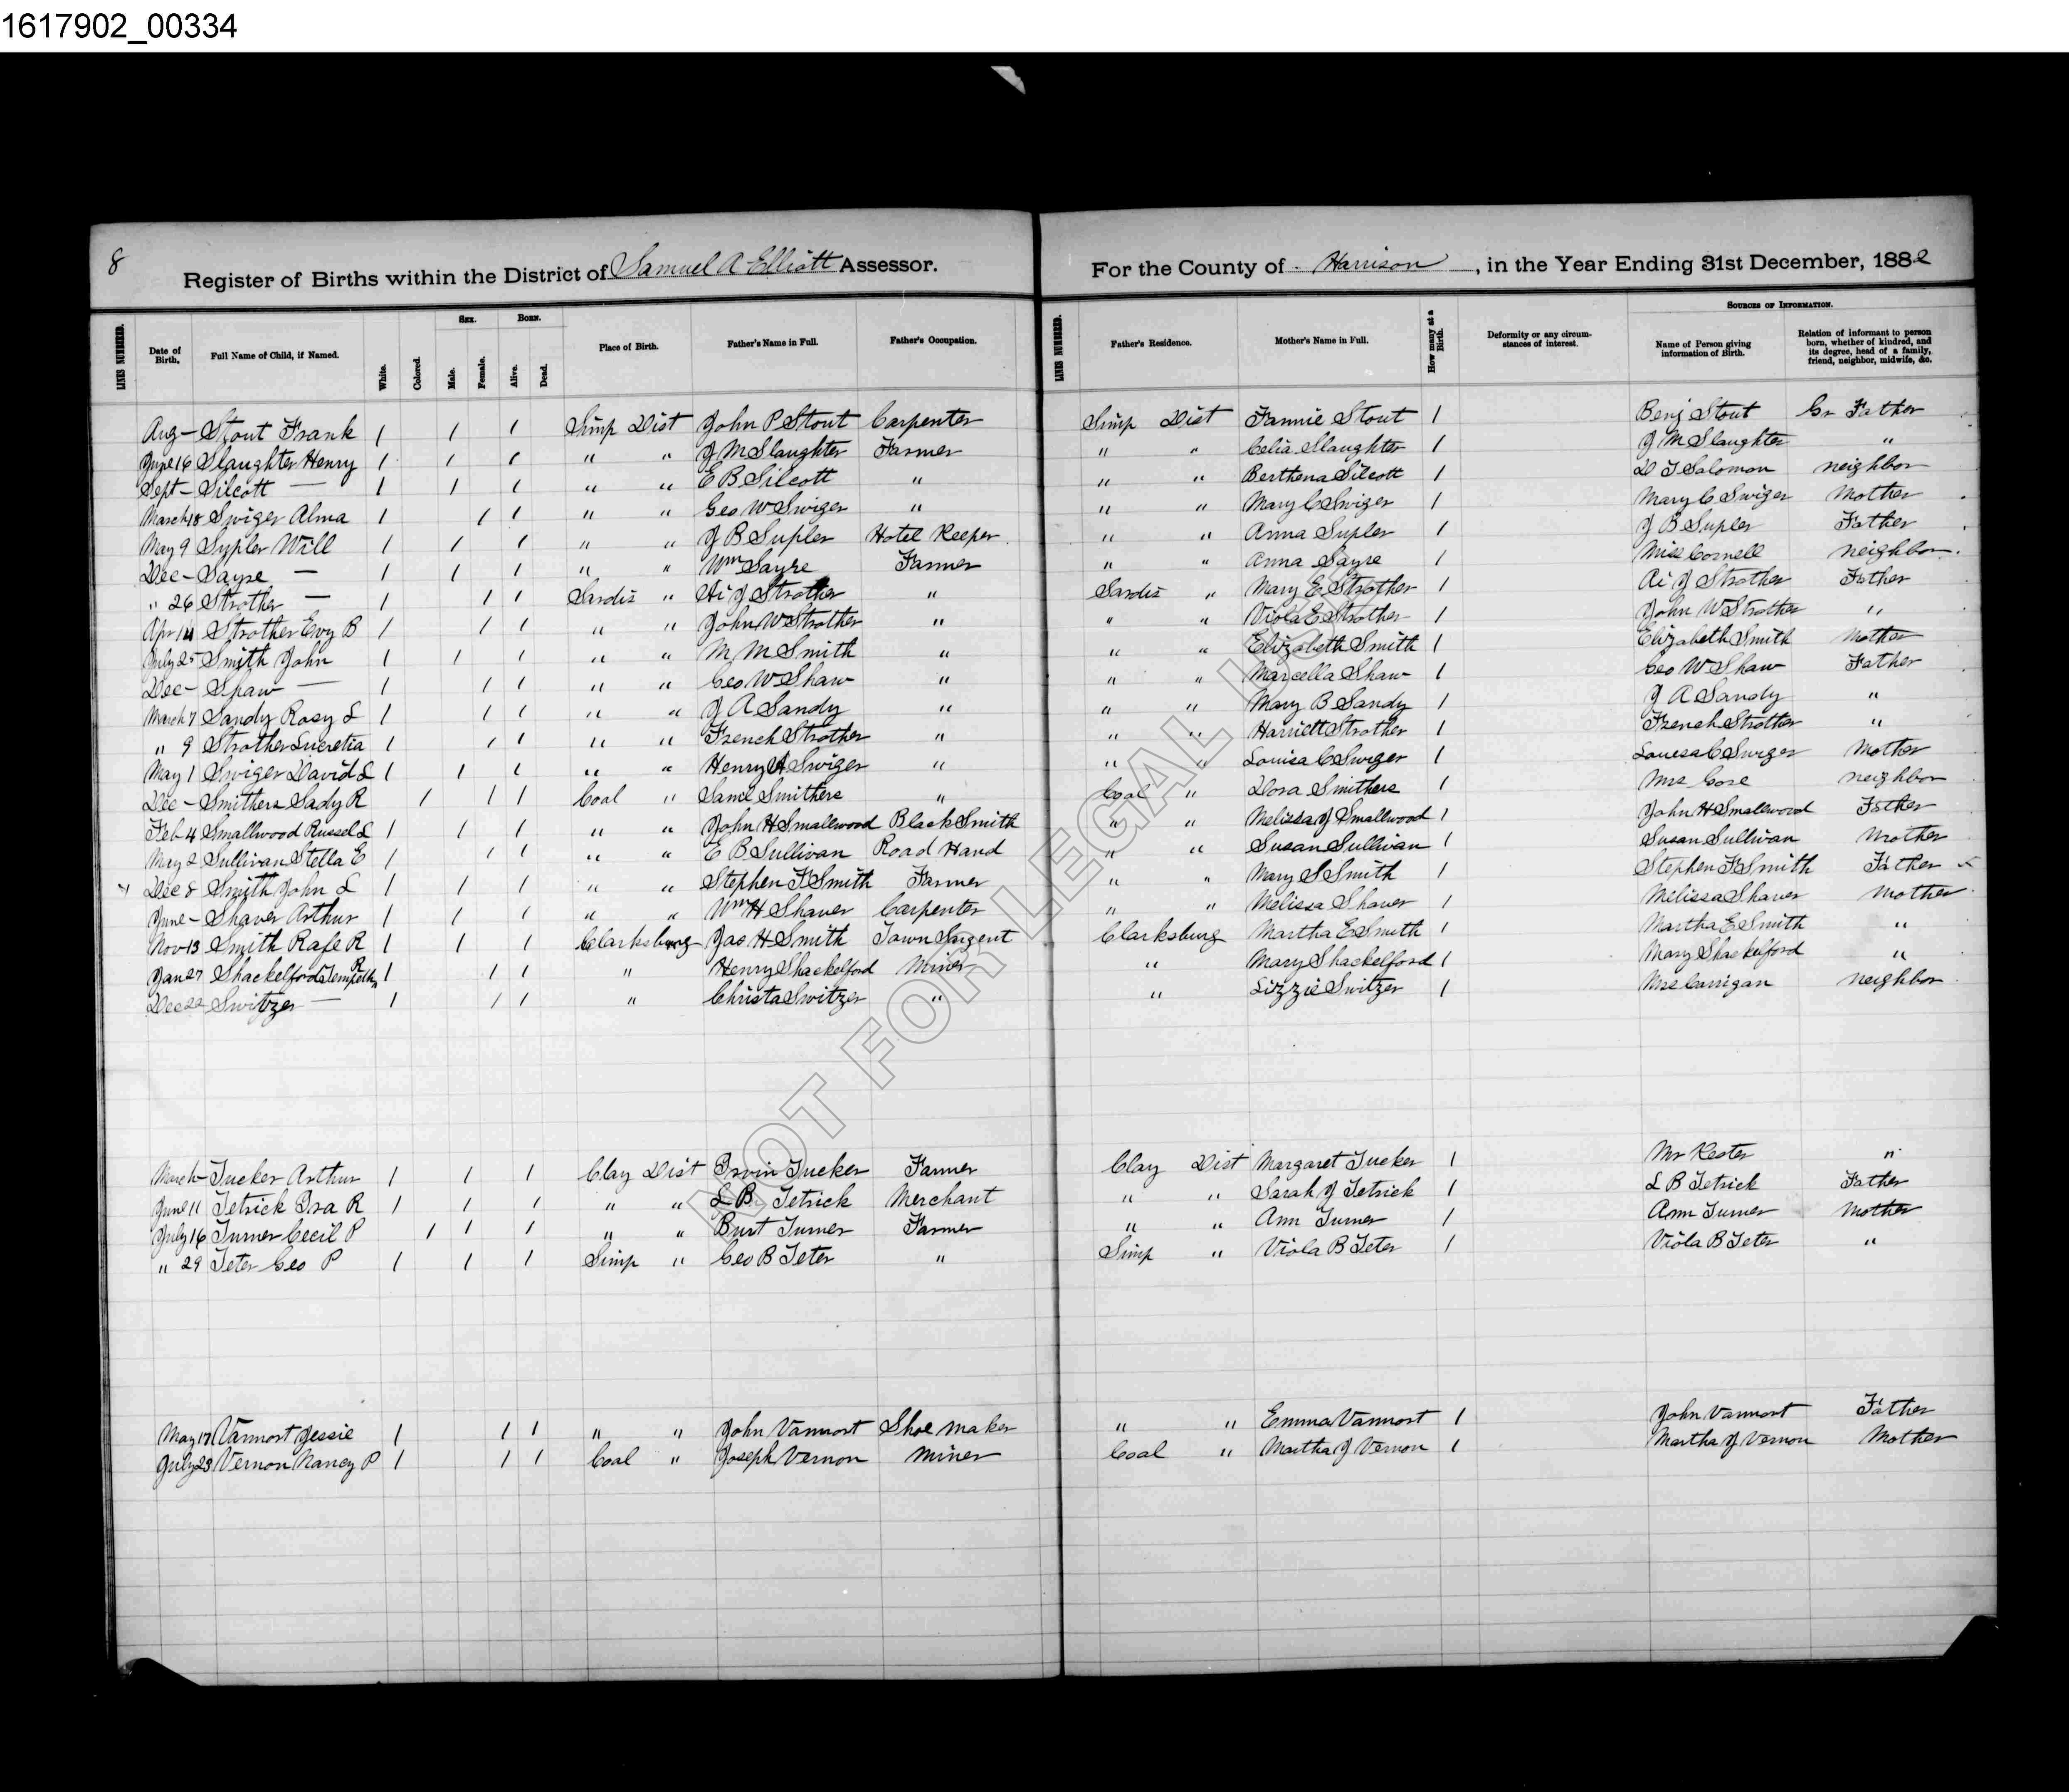 1617902_00334
8
Register of Births within the District of Samuel A Elliott Assessor.
For the County of Harrison, in the Year Ending 31st December, 1882
LINES NUMBERED. Date of Birth. Full Name of Child, if Named. White. Colored. Sex. Male. Female. Born. Alive. Dead. Place of Birth. Father's Name in Full. Father's Occupation.
LINES NUMBERED. Father's Residence. Mother's Name in Full. How many at a Birth. Deformity or any circumstances of interest. Sources of Information. Name of Person giving information of Birth. Relation of informant to person born, whether of kindred, and its degree, head of a family, friend, neighbor, midwife, &c.
Aug — Stout Frank 1 1 1 Simp Dist John P Stout Carpenter Simp Dist Fannie Stout 1 Benj Stout Gr Father
June 16 Slaughter Henry 1 1 1 " " J M Slaughter Farmer " " Celia Slaughter 1 J M Slaughter "
Sept — Silcott — 1 1 1 " " E B Silcott " " " Berthena Silcott 1 D T Salomon neighbor
March 18 Swiger Alma 1 1 1 " " Geo W Swiger " " " Mary C Swiger 1 Mary C Swiger Mother
May 9 Supler Will 1 1 1 " " J B Supler Hotel Keeper " " Anna Supler 1 J B Supler Father
Dec — Sayre — 1 1 1 " " Wm Sayre Farmer " " Anna Sayre 1 Miss Cornell neighbor
" 26 Strother — 1 1 1 Sardis " Ai J Strother " Sardis " Mary E Strother 1 Ai J Strother Father
Apr 14 Strother Evy B 1 1 1 " " John W Strother " " " Viola E Strother 1 John W Strother "
July 25 Smith John 1 1 1 " " M M Smith " " " Elizabeth Smith 1 Elizabeth Smith Mother
Dec — Shaw — 1 1 1 " " Geo W Shaw " " " Marcella Shaw 1 Geo W Shaw Father
March 7 Sandy Rosy L 1 1 1 " " J A Sandy " " " Mary B Sandy 1 J A Sandy "
" 9 Strother Lucretia 1 1 1 " " French Strother " " " Harriett Strother 1 French Strother "
May 1 Swiger David L 1 1 1 " " Henry A Swiger " " " Louisa C Swiger 1 Louesa C Swiger Mother
Dec — Smithers Sady R 1 1 1 Coal " Saml Smithers " Coal " Dora Smithers 1 Mrs Gore neighbor
Feb 4 Smallwood Russel L 1 1 1 " " John H Smallwood Black Smith " " Melissa J Smallwood 1 John H Smallwood Father
May 2 Sullivan Stella E 1 1 1 " " E B Sullivan Road Hand " " Susan Sullivan 1 Susan Sullivan Mother
Dec 8 Smith John L 1 1 1 " " Stephen F Smith Farmer " " Mary S Smith 1 Stephen F Smith Father
June — Shaver Arthur 1 1 1 " " Wm H Shaver Carpenter " " Melissa Shaver 1 Melissa Shaver Mother
Nov 13 Smith Rafe R 1 1 1 Clarksburg Jas H Smith Town Sargent Clarksburg Martha E Smith 1 Martha E Smith "
Jan 27 Shackelford 1 1 1 " Henry Shackelford Miner " Mary Shackelford 1 Mary Shackelford "
Dec 22 Switzer — 1 1 1 " Christa Switzer " " Lizzie Switzer 1 Mrs Carrigan neighbor
March — Tucker Arthur 1 1 1 Clay Dist Irvin Tucker Farmer Clay Dist Margaret Tucker 1 Mr Kester "
June 11 Tetrick Ira R 1 1 1 " " L B. Tetrick Merchant " " Sarah J Tetrick 1 L B Tetrick Father
July 16 Turner Cecil P 1 1 1 " " Burt Turner Farmer " " Ann Turner 1 Ann Turner Mother
" 29 Teter Geo P 1 1 1 Simp " Geo B Teter " Simp " Viola B Teter 1 Viola B Teter "
May 17 Vannort Jessie 1 1 1 " " John Vannort Shoe maker " " Emma Vannort 1 John Vannort Father
July 23 Vernon Nancy P 1 1 1 Coal " Joseph Vernon Miner Coal " Martha J Vernon 1 Martha J Vernon Mother
NOT FOR LEGAL USE